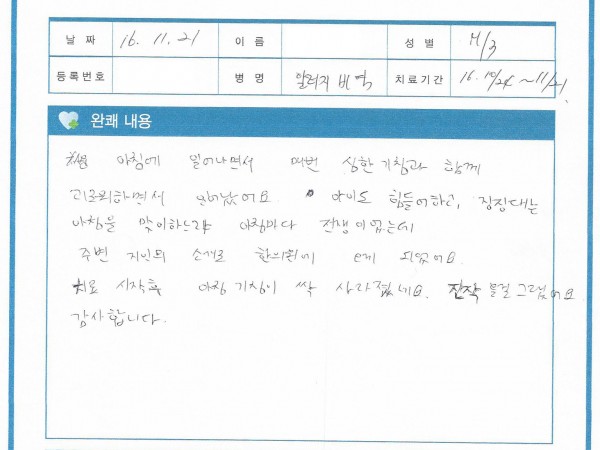 날 짜 16. 11. 21 이 름 성 별 M/3
등록번호 병 명 알러지 비염 치료기간 16. 10/24 ~ 11/21.
완쾌 내용
아침에 일어나면서 매번 심한 기침과 함께
괴로워하면서 일어났어요. 아이도 힘들어하고, 징징대는
아침을 맞이하느라 아침마다 전쟁이었는데
주변 지인의 소개로 한의원에 오게 되었어요.
치료 시작후 아침 기침이 싹 사라졌네요. 진작 올걸 그랬어요
감사합니다.